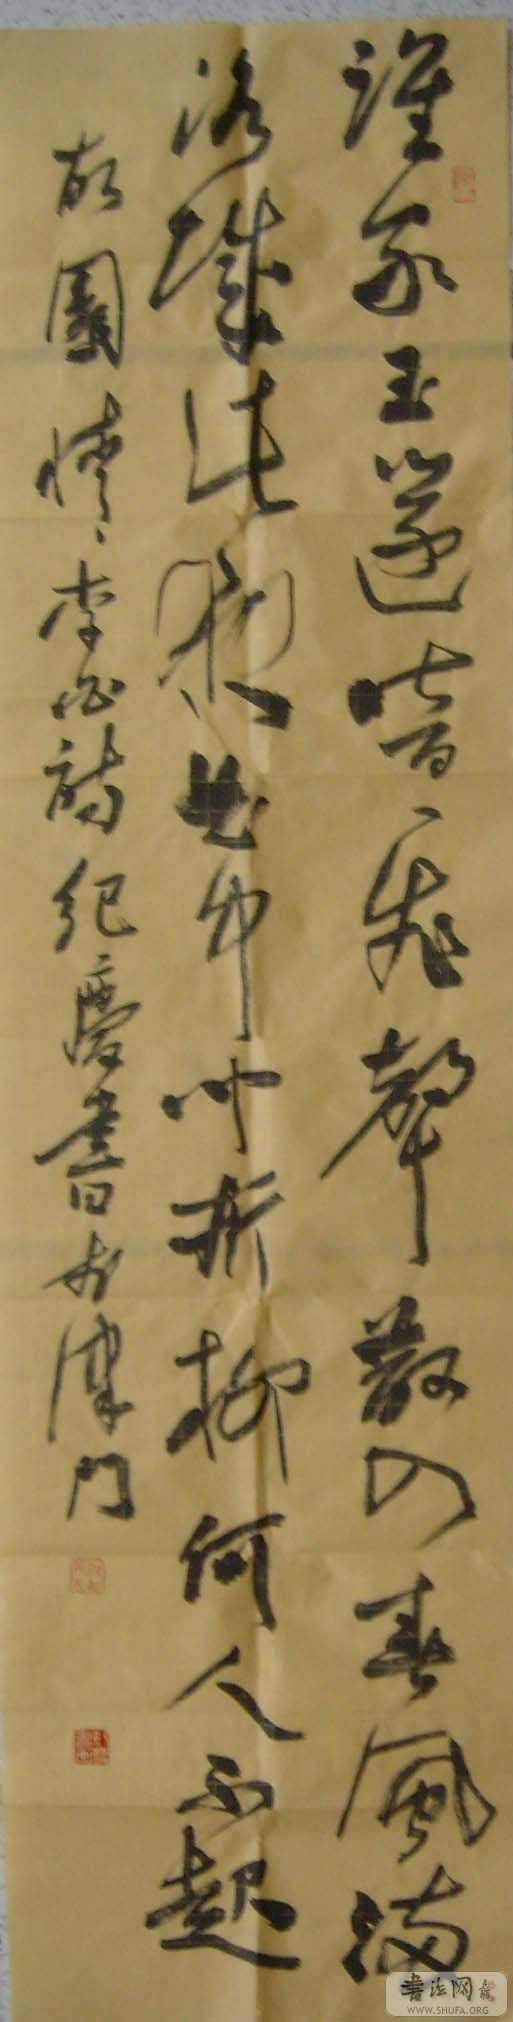 誰家玉邃暗、飛聲散入春風滿
洛城此夜曲中聞折柳何人不起
故園情、李白詩紀慶書於津門
書法网
WWW.SHUFA.ORG